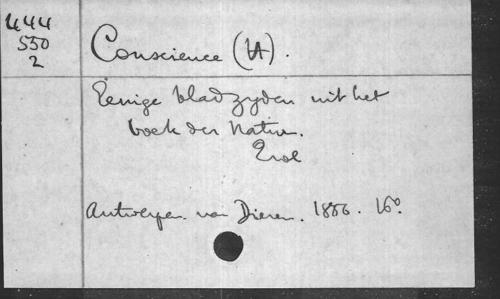 444
550
2
Conscience (H).
Eenige bladzyden uit het
boek der Natur.
2 vol
Antwerpen. van Dieren. 1856. 16°.